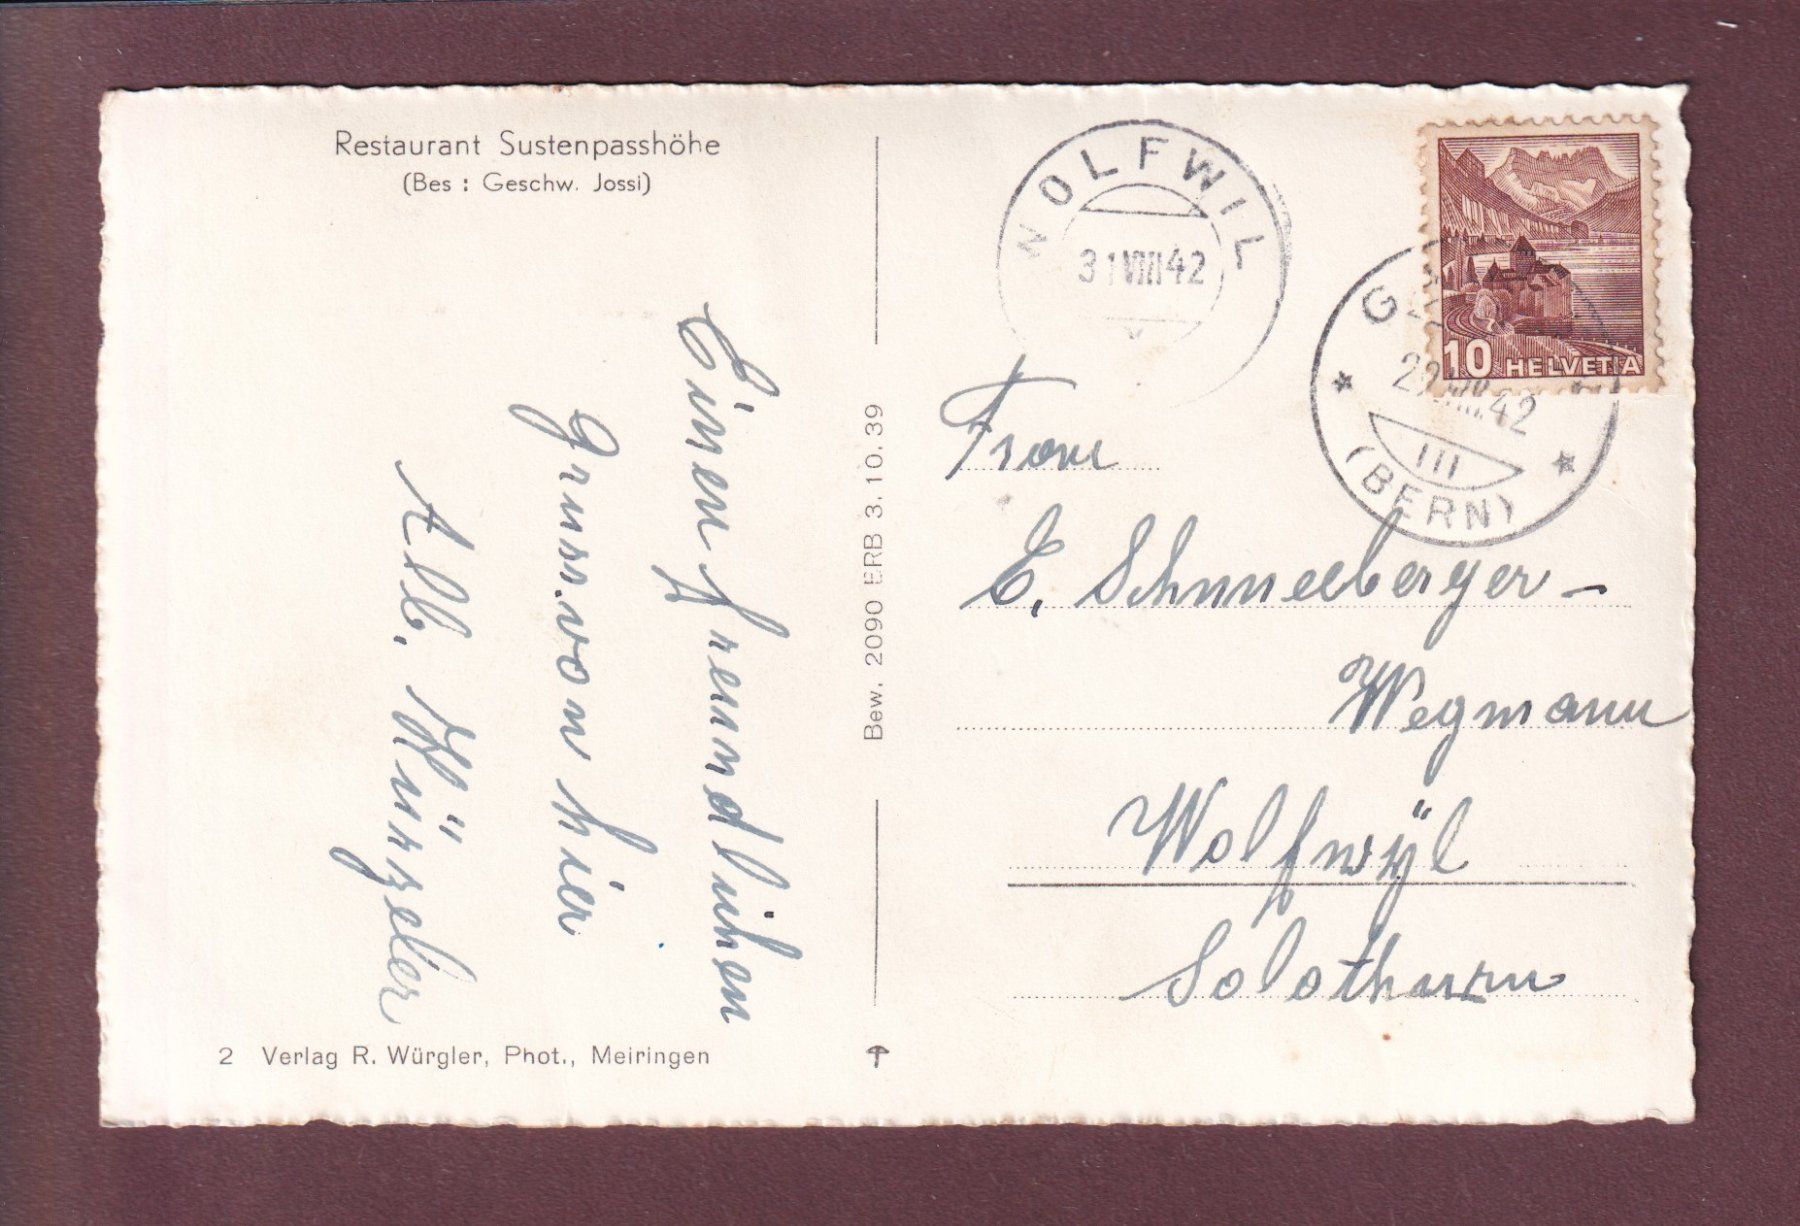 Restaurant Sustenpasshöhe
(Bes : Geschw. Jossi)
Einen freundlichen
gruss von hier
Alb. Hürzeler
2 Verlag R. Würgler, Phot., Meiringen
Bew. 2090 ERB 3.10.39
WOLFWIL
31 VIII 42
10 HELVETIA
VIII.42
III
(BERN)
Frau
E. Schnneeberger –
Wegmann
Wolfwÿl
Solothurn